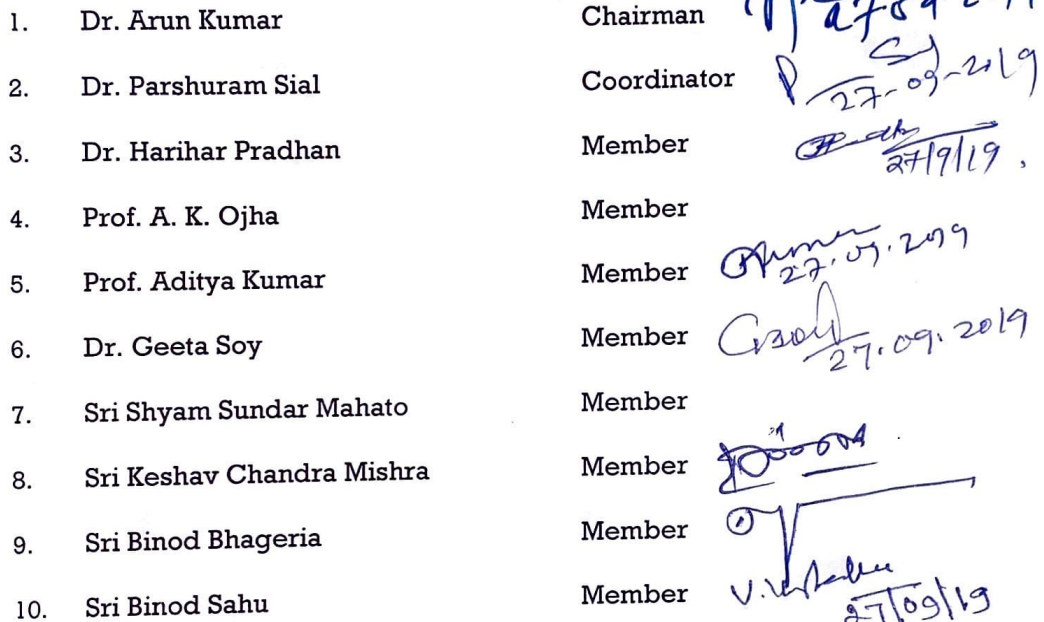 1. Dr. Arun Kumar Chairman
2. Dr. Parshuram Sial Coordinator 27-09-2019
3. Dr. Harihar Pradhan Member 27/9/19
4. Prof. A. K. Ojha Member
5. Prof. Aditya Kumar Member 27.09.2019
6. Dr. Geeta Soy Member 27.09.2019
7. Sri Shyam Sundar Mahato Member
8. Sri Keshav Chandra Mishra Member
9. Sri Binod Bhageria Member
10. Sri Binod Sahu Member 27/09/19